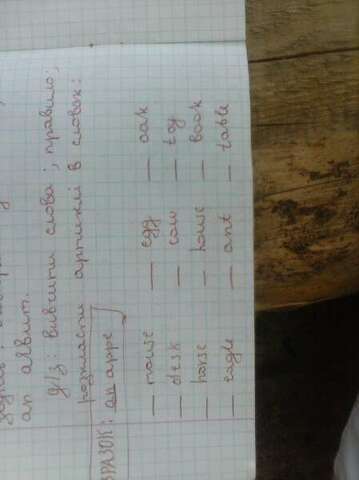 an album.
д/з: вивчити слова; правило;
розмістити артиклі в словах:
ЗРАЗОК: an appe
— mouse — egg — oak
— desk — cow — toy
— horse — house — book
— eagle — ant — table